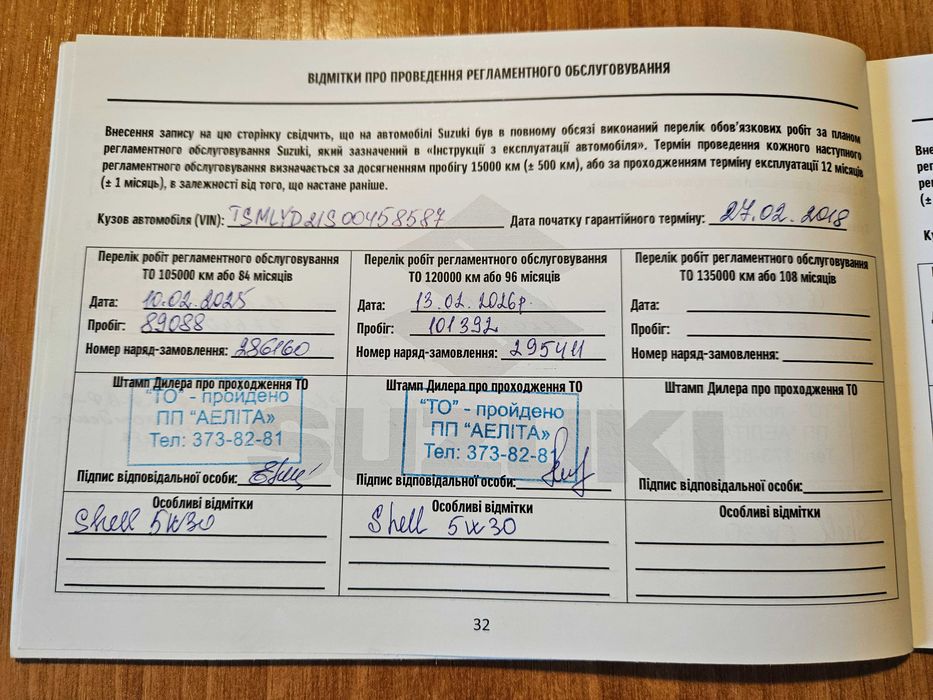 ВІДМІТКИ ПРО ПРОВЕДЕННЯ РЕГЛАМЕНТНОГО ОБСЛУГОВУВАННЯ
Внесення запису на цю сторінку свідчить, що на автомобілі Suzuki був в повному обсязі виконаний перелік обов'язкових робіт за планом
регламентного обслуговування Suzuki, який зазначений в «Інструкції з експлуатації автомобіля». Термін проведення кожного наступного
регламентного обслуговування визначається за досягненням пробігу 15000 км (± 500 км), або за проходженням терміну експлуатації 12 місяців
(± 1 місяць), в залежності від того, що настане раніше.
Кузов автомобіля (VIN): TSMLYD21S00458587 Дата початку гарантійного терміну: 27.02.2018
Перелік робіт регламентного обслуговування
ТО 105000 км або 84 місяців
Дата: 10.02.2025
Пробіг: 89088
Номер наряд-замовлення: 286160
Штамп Дилера про проходження ТО
"ТО" - пройдено
ПП "АЕЛІТА»
Тел: 373-82-81
Підпис відповідальної особи:
Особливі відмітки
Shell 5w30
Перелік робіт регламентного обслуговування
ТО 120000 км або 96 місяців
Дата: 13.02.2026р.
Пробіг: 101392
Номер наряд-замовлення: 295411
Штамп Дилера про проходження ТО
"ТО" - пройдено
ПП "АЕЛІТА»
Тел: 373-82-81
Підпис відповідальної особи:
Особливі відмітки
Shell 5w30
Перелік робіт регламентного обслуговування
ТО 135000 км або 108 місяців
Дата:
Пробіг:
Номер наряд-замовлення:
Штамп Дилера про проходження ТО
Підпис відповідальної особи:
Особливі відмітки
SUZUKI
32